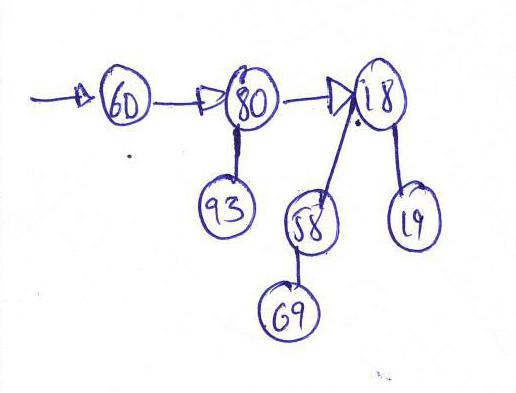 60 80 18
93 58 19
69